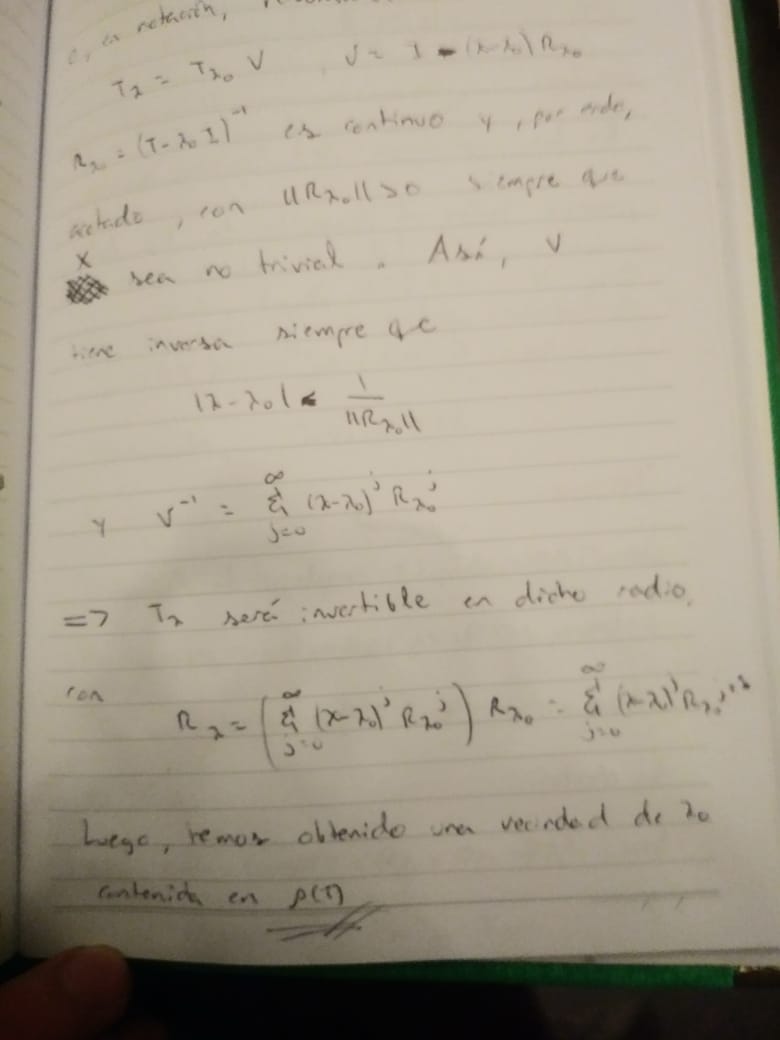 o, en notación,
T_λ = T_λ₀ V , V = I - (λ-λ₀) R_λ₀
R_λ₀ = (T - λ₀ I)^-1 es continuo y, por ende,
acotado, con ||R_λ₀|| > 0 siempre que
X
sea no trivial. Así, V
tiene inversa siempre que
|λ - λ₀| < 1/||R_λ₀||
y V^-1 = Σ_{j=0}^∞ (λ-λ₀)^j R_λ₀^j
=> T_λ será invertible en dicho radio,
con
R_λ = (Σ_{j=0}^∞ (λ-λ₀)^j R_λ₀^j) R_λ₀ = Σ_{j=0}^∞ (λ-λ₀)^j R_λ₀^{j+1}
Luego, hemos obtenido una vecindad de λ₀
contenida en ρ(T)